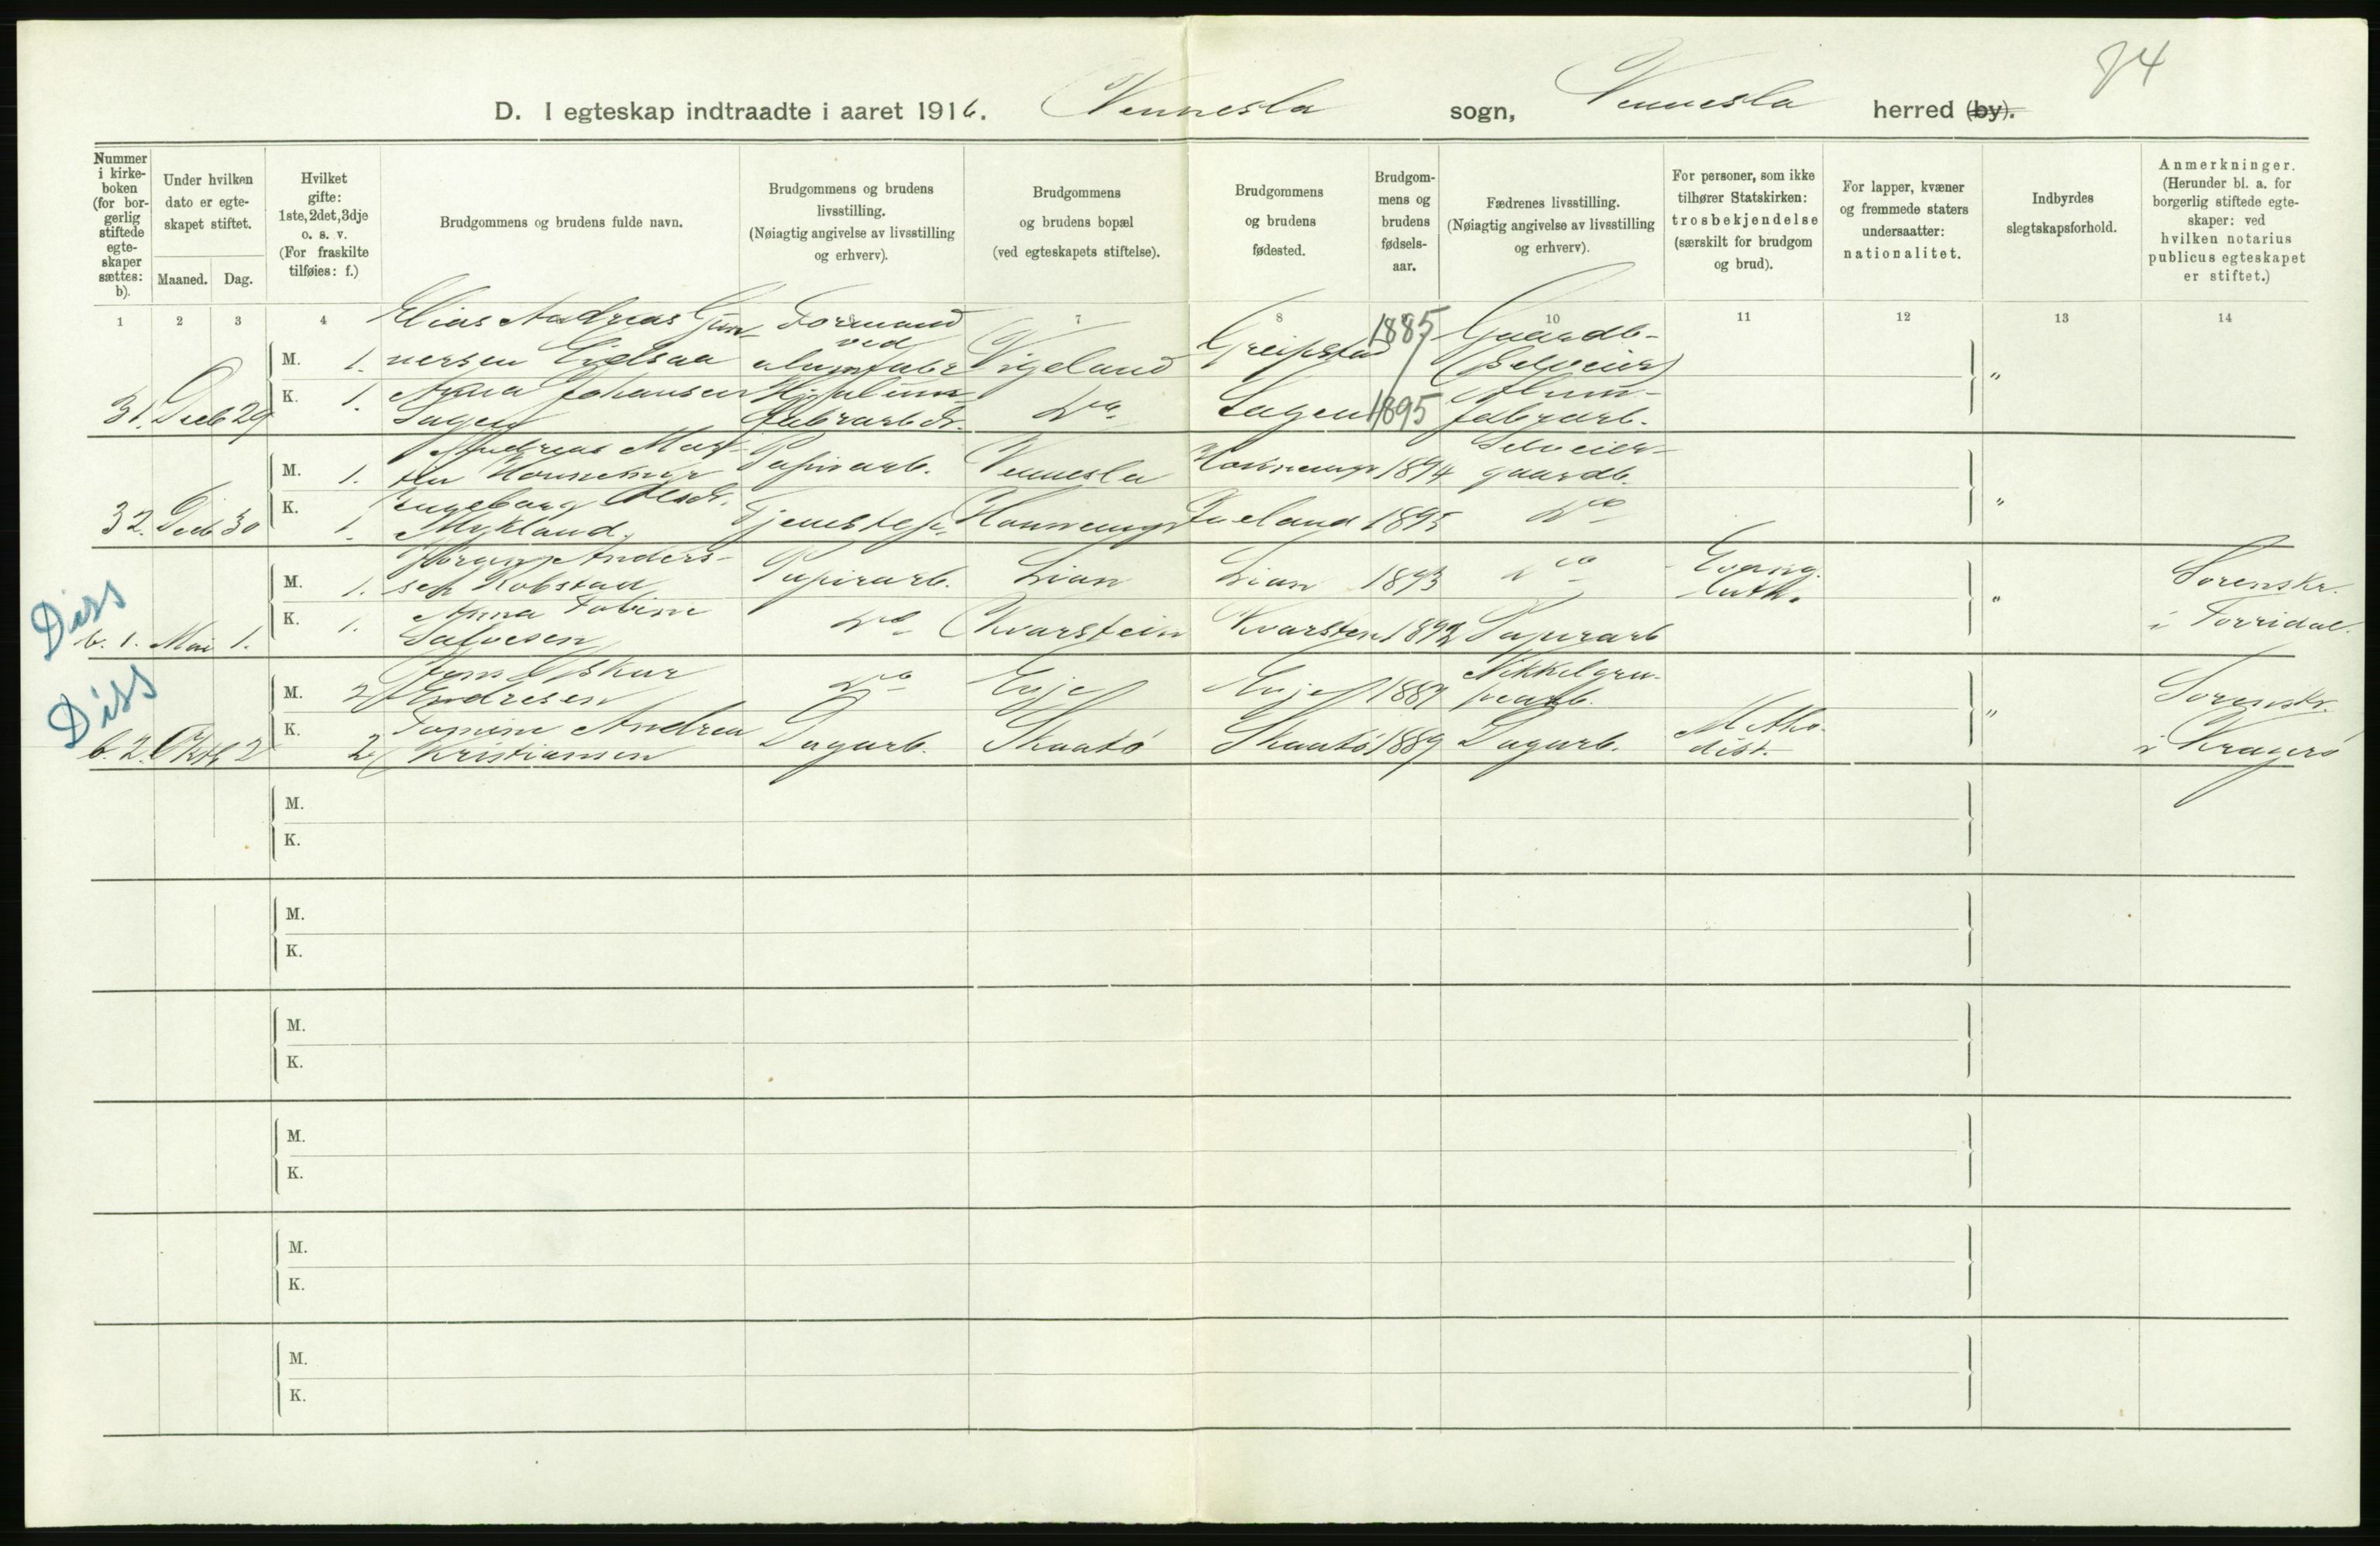 84
D. I egteskap indtraadte i aaret 1916. Vennesla sogn, Vennesla herred (by).
Nummer i kirkeboken (for borgerlig stiftede egteskaper sættes: b).
Under hvilken dato er egteskapet stiftet.
Maaned. Dag.
Hvilket gifte: 1ste, 2det, 3dje o. s. v. (For fraskilte tilføies: f.)
Brudgommens og brudens fulde navn.
Brudgommens og brudens livsstilling. (Nøiagtig angivelse av livsstilling og erhverv).
Brudgommens og brudens bopæl (ved egteskapets stiftelse).
Brudgommens og brudens fødested.
Brudgommens og brudens fødselsaar.
Fædrenes livsstilling. (Nøiagtig angivelse av livsstilling og erhverv).
For personer, som ikke tilhører Statskirken: trosbekjendelse (særskilt for brudgom og brud).
For lapper, kvæner og fremmede staters undersaatter: nationalitet.
Indbyrdes slegtskapsforhold.
Anmerkninger. (Herunder bl. a. for borgerlig stiftede egteskaper: ved hvilken notarius publicus egteskapet er stiftet.)
1 2 3 4 7 8 10 11 12 13 14
Elias Andreas Gun- Formand ved 1885 Gaardb-
M. 1. nersen Vigeland Greipstad (Selveier) "
K. 1. Anna Johansen Hj. Alum-
31. Decb 29 Sagen Fabrarb. do Sagen 1895 fabrarb.
Andreas Mar- Selveier-
M. 1. Papirarb. Vennesla 1894 gaardb.
K. Ingeborg Olsdr. "
32. Decb 30 1. Mykland. Honnemyr 1895 do
Anders-
M. 1. sen Robstad Papirarb. Lian Lian 1893 do Evang. luth. " Sorenskr.
Diss K. 1. Anna Tobine i Torridal.
b. 1. Mai 1. Salvesen do Kvarstein Kvarstein 1892 Papirarb
Jens Oskar Nikkelgru-
M. 2 Endresen do Evje Evje 1887 vearb. " Sorenskr.
Diss K. Tomine Andrea Metho-
b. 2. Oktb 2 2 Kristiansen Dagarb. Skaatø Skaatø 1889 Dagarb. dist. i Kragerø
M.
K.
M.
K.
M.
K.
M.
K.
M.
K.
M.
K.